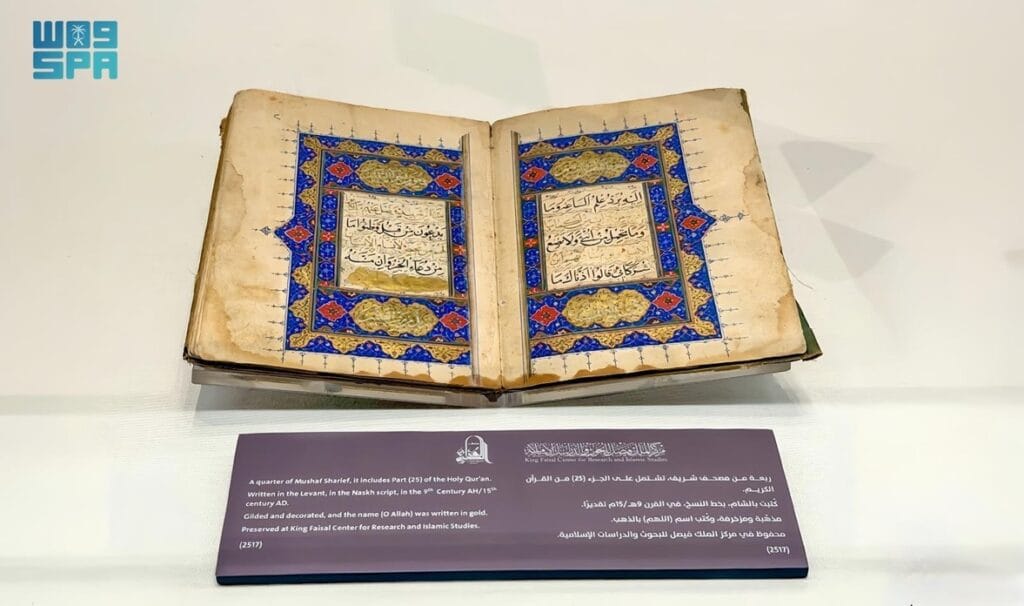 WAS
SPA
إليه يرد علم الساعة وما
وما تحمل من أنثى ولا تضع
شركائي قالوا آذناك ما
يدعون من قبل وظنوا ما
من دعاء الخير وإن مسه
مركز الملك فيصل للبحوث والدراسات الإسلامية
King Faisal Center for Research and Islamic Studies
ربعة من مصحف شريف، تشتمل على الجزء (25) من القرآن
الكريم.
كُتبت بالشام، بخط النسخ، في القرن 9هـ/15م تقديرًا.
مذهّبة ومزخرفة، وكُتب اسم (اللهم) بالذهب.
محفوظ في مركز الملك فيصل للبحوث والدراسات الإسلامية.
(2517)
A quarter of Mushaf Sharief, it includes Part (25) of the Holy Qur'an.
Written in the Levant, in the Naskh script, in the 9th Century AH/15th
century AD.
Gilded and decorated, and the name (O Allah) was written in gold.
Preserved at King Faisal Center for Research and Islamic Studies.
(2517)